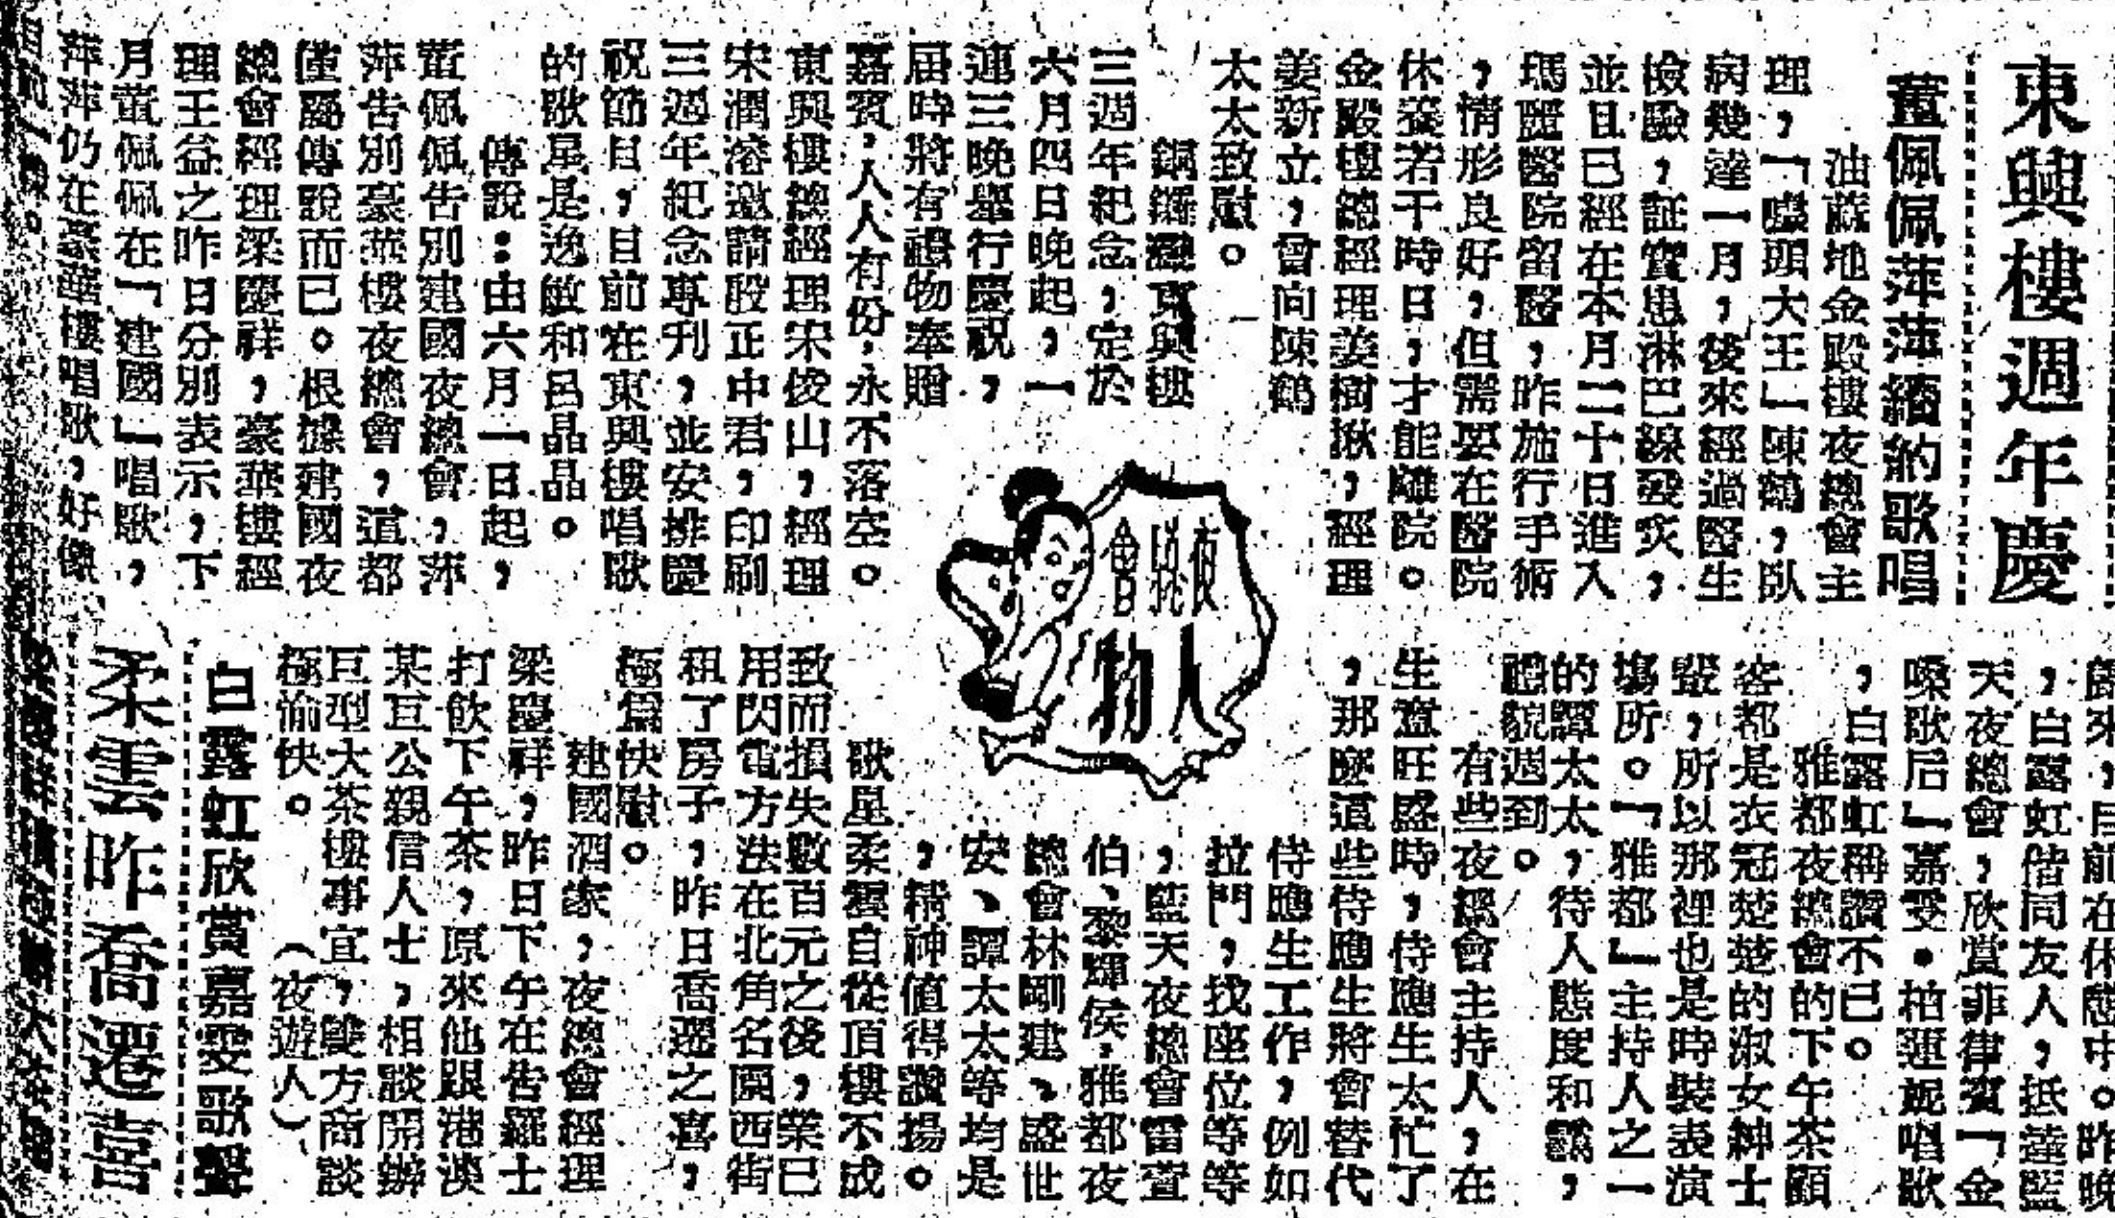 東興樓週年慶
董佩佩萍萍續約歌唱
油蔴地金殿樓夜總會主
理，「囉頭大王」陳鶴，臥
病幾達一月，後來經過醫生
檢驗，証實患淋巴線發炎，
並且已經在本月二十日進入
瑪麗醫院留醫，昨施行手術
，情形良好，但需要在醫院
休養若干時日，才能離院。
金殿樓總經理姜樹楸，經理
姜新立，曾向陳鶴
太太致慰。
銅鑼灣東興樓
三週年紀念，定於
六月四日晚起，一
連三晚舉行慶祝，
屆時將有禮物奉贈
嘉賓，人人有份，永不落空。
東興樓總經理宋俊山，經理
宋潤溶邀請殷正中君，印刷
三週年紀念專刊，並安排慶
祝節目，目前在東興樓唱歌
的歌星是逸敏和呂晶晶。
傳說：由六月一日起，
董佩佩告別建國夜總會，萍
萍告別豪華樓夜總會，這都
僅屬傳說而已。根據建國夜
總會經理梁慶祥，豪華樓經
理王益之昨日分別表示，下
月董佩佩在「建國」唱歌，
萍萍仍在豪華樓唱歌，好像
目前一樣。
夜總會
人物
歸來，目前在休憩中。昨晚
，白露虹偕同友人，抵達藍
天夜總會，欣賞菲律賓「金
嗓歌后」嘉雯．柏蓮妮唱歌
，白露虹稱讚不已。
雅都夜總會的下午茶顧
客都是衣冠楚楚的淑女紳士
，所以那裡也是時裝表演
場所。「雅都」主持人之一
的譚太太，待人態度和藹，
禮貌週到。
有些夜總會主持人，在
生意旺盛時，侍應生太忙了
，那麼這些侍應生將會替代
侍應生工作，例如
拉門，找座位等等
，藍天夜總會雷萱
伯、黎輝侯，雅都夜
總會林剛建、盛世
安、譚太太等均是
，精神值得讚揚。
歌星柔雲自從頂樓不成
致而損失數百元之後，業已
用閃電方法在北角名園西街
租了房子，昨日喬遷之喜，
極為快慰。
建國酒家，夜總會經理
梁慶祥，昨日下午在告羅士
打飲下午茶，原來他跟港澳
某亙公親信人士，相談開辦
巨型大茶樓事宜，雙方商談
極愉快。（夜遊人）
白露虹欣賞嘉雯歌聲
柔雲昨喬遷喜